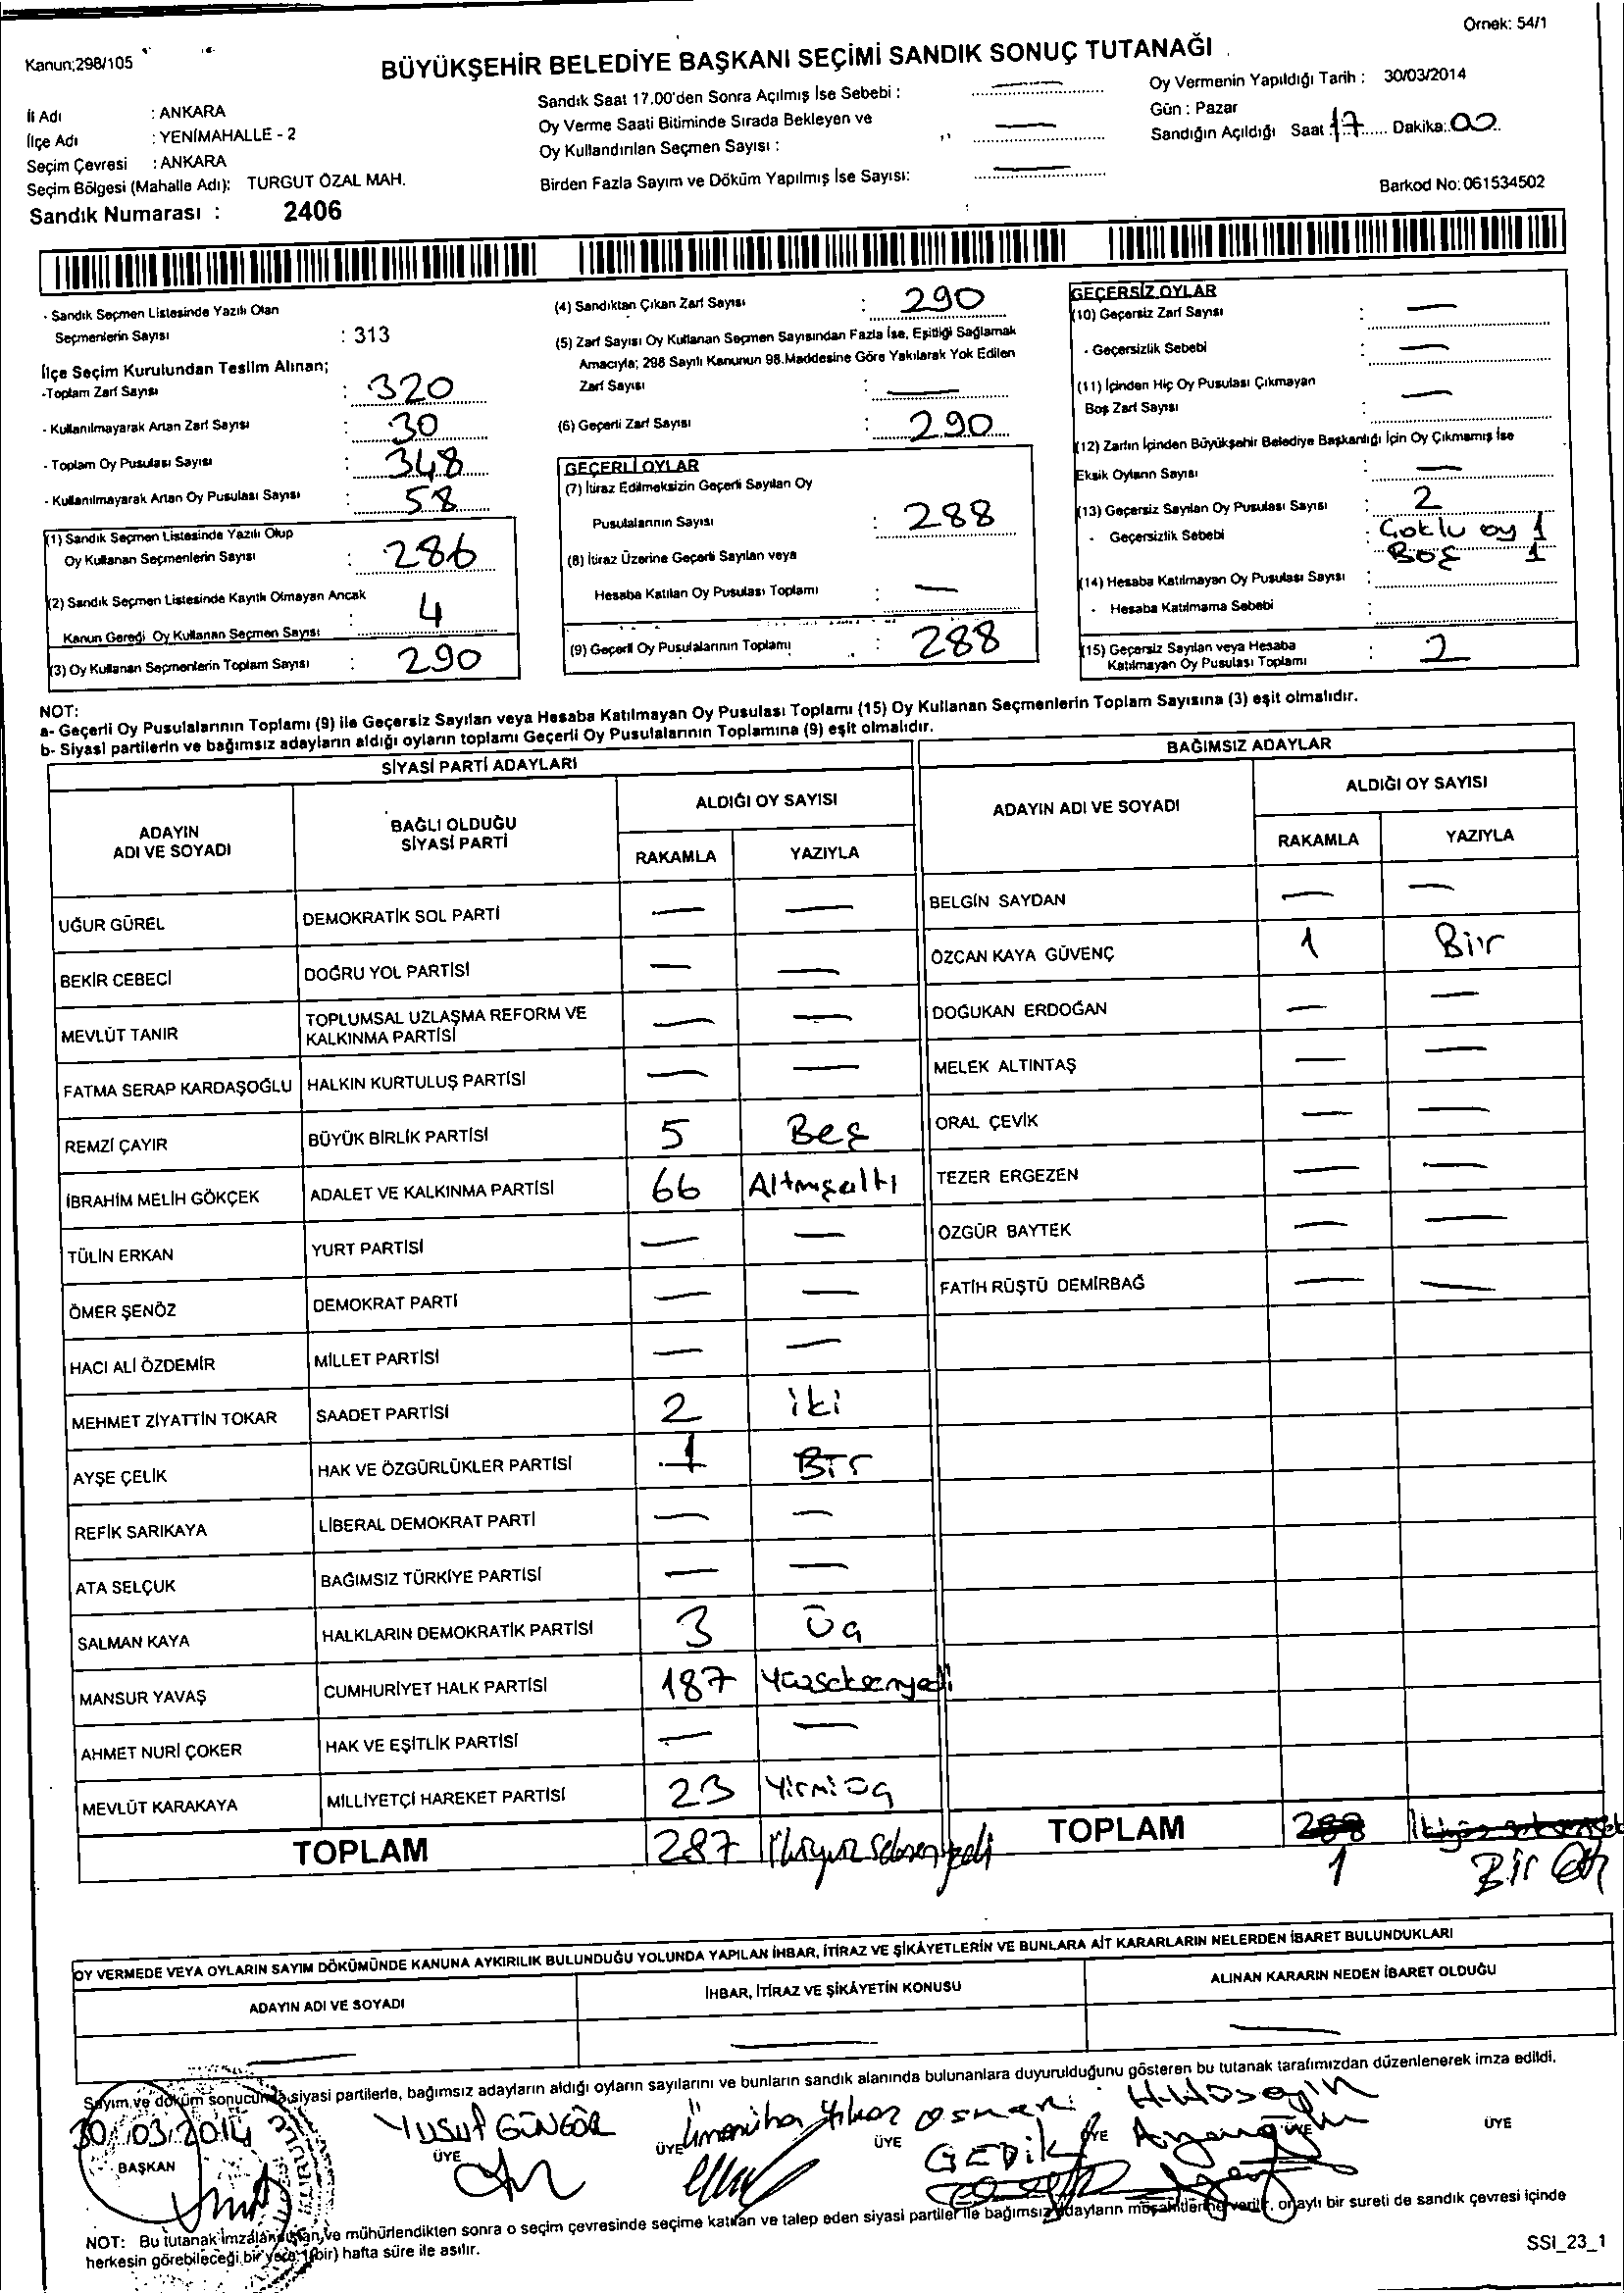 Örnek: 54/1
Kanun;298/105
BÜYÜKŞEHİR BELEDİYE BAŞKANI SEÇİMİ SANDIK SONUÇ TUTANAĞI
İl Adı : ANKARA
İlçe Adı : YENİMAHALLE - 2
Seçim Çevresi : ANKARA
Seçim Bölgesi (Mahalle Adı): TURGUT ÖZAL MAH.
Sandık Numarası : 2406
Sandık Saat 17.00'den Sonra Açılmış İse Sebebi : —
Oy Verme Saati Bitiminde Sırada Bekleyen ve
Oy Kullandırılan Seçmen Sayısı : —
Birden Fazla Sayım ve Döküm Yapılmış İse Sayısı: —
Oy Vermenin Yapıldığı Tarih : 30/03/2014
Gün : Pazar
Sandığın Açıldığı Saat 17 Dakika: 00
Barkod No: 061534502
- Sandık Seçmen Listesinde Yazılı Olan
Seçmenlerin Sayısı : 313
İlçe Seçim Kurulundan Teslim Alınan;
-Toplam Zarf Sayısı : 320
- Kullanılmayarak Artan Zarf Sayısı : 30
- Toplam Oy Pusulası Sayısı : 348
- Kullanılmayarak Artan Oy Pusulası Sayısı : 58
(1) Sandık Seçmen Listesinde Yazılı Olup
Oy Kullanan Seçmenlerin Sayısı : 286
(2) Sandık Seçmen Listesinde Kayıtlı Olmayan Ancak
Kanun Gereği Oy Kullanan Seçmen Sayısı : 4
(3) Oy Kullanan Seçmenlerin Toplam Sayısı : 290
(4) Sandıktan Çıkan Zarf Sayısı : 290
(5) Zarf Sayısı Oy Kullanan Seçmen Sayısından Fazla İse, Eşitliği Sağlamak
Amacıyla; 298 Sayılı Kanunun 98.Maddesine Göre Yakılarak Yok Edilen
Zarf Sayısı : —
(6) Geçerli Zarf Sayısı : 290
GEÇERLİ OYLAR
(7) İtiraz Edilmeksizin Geçerli Sayılan Oy
Pusulalarının Sayısı : 288
(8) İtiraz Üzerine Geçerli Sayılan veya
Hesaba Katılan Oy Pusulası Toplamı : —
(9) Geçerli Oy Pusulalarının Toplamı : 288
GEÇERSİZ OYLAR
(10) Geçersiz Zarf Sayısı : —
- Geçersizlik Sebebi : —
(11) İçinden Hiç Oy Pusulası Çıkmayan
Boş Zarf Sayısı : —
(12) Zarfın İçinden Büyükşehir Belediye Başkanlığı İçin Oy Çıkmamış İse
Eksik Oyların Sayısı : —
(13) Geçersiz Sayılan Oy Pusulası Sayısı : 2
- Geçersizlik Sebebi : Çoklu oy 1
Boş 1
(14) Hesaba Katılmayan Oy Pusulası Sayısı :
- Hesaba Katılmama Sebebi :
(15) Geçersiz Sayılan veya Hesaba
Katılmayan Oy Pusulası Toplamı : 2
NOT:
a- Geçerli Oy Pusulalarının Toplamı (9) ile Geçersiz Sayılan veya Hesaba Katılmayan Oy Pusulası Toplamı (15) Oy Kullanan Seçmenlerin Toplam Sayısına (3) eşit olmalıdır.
b- Siyasi partilerin ve bağımsız adayların aldığı oyların toplamı Geçerli Oy Pusulalarının Toplamına (9) eşit olmalıdır.
SİYASİ PARTİ ADAYLARI
ADAYIN ADI VE SOYADI BAĞLI OLDUĞU SİYASİ PARTİ ALDIĞI OY SAYISI
RAKAMLA YAZIYLA
UĞUR GÜREL DEMOKRATİK SOL PARTİ — —
BEKİR CEBECİ DOĞRU YOL PARTİSİ — —
MEVLÜT TANIR TOPLUMSAL UZLAŞMA REFORM VE KALKINMA PARTİSİ — —
FATMA SERAP KARDAŞOĞLU HALKIN KURTULUŞ PARTİSİ — —
REMZİ ÇAYIR BÜYÜK BİRLİK PARTİSİ 5 Beş
İBRAHİM MELİH GÖKÇEK ADALET VE KALKINMA PARTİSİ 66 Altmışaltı
TÜLİN ERKAN YURT PARTİSİ — —
ÖMER ŞENÖZ DEMOKRAT PARTİ — —
HACI ALİ ÖZDEMİR MİLLET PARTİSİ — —
MEHMET ZİYATTİN TOKAR SAADET PARTİSİ 2 iki
AYŞE ÇELİK HAK VE ÖZGÜRLÜKLER PARTİSİ 1 Bir
REFİK SARIKAYA LİBERAL DEMOKRAT PARTİ — —
ATA SELÇUK BAĞIMSIZ TÜRKİYE PARTİSİ — —
SALMAN KAYA HALKLARIN DEMOKRATİK PARTİSİ 3 Üç
MANSUR YAVAŞ CUMHURİYET HALK PARTİSİ 187 Yüzseksenyedi
AHMET NURİ ÇOKER HAK VE EŞİTLİK PARTİSİ — —
MEVLÜT KARAKAYA MİLLİYETÇİ HAREKET PARTİSİ 23 Yirmiüç
TOPLAM 287 İkiyüzseksenyedi
BAĞIMSIZ ADAYLAR
ADAYIN ADI VE SOYADI ALDIĞI OY SAYISI
RAKAMLA YAZIYLA
BELGİN SAYDAN — —
ÖZCAN KAYA GÜVENÇ 1 Bir
DOĞUKAN ERDOĞAN — —
MELEK ALTINTAŞ — —
ORAL ÇEVİK — —
TEZER ERGEZEN — —
ÖZGÜR BAYTEK — —
FATİH RÜŞTÜ DEMİRBAĞ — —
TOPLAM 288
1 Bir
OY VERMEDE VEYA OYLARIN SAYIM DÖKÜMÜNDE KANUNA AYKIRILIK BULUNDUĞU YOLUNDA YAPILAN İHBAR, İTİRAZ VE ŞİKÂYETLERİN VE BUNLARA AİT KARARLARIN NELERDEN İBARET BULUNDUKLARI
ADAYIN ADI VE SOYADI İHBAR, İTİRAZ VE ŞİKÂYETİN KONUSU ALINAN KARARIN NEDEN İBARET OLDUĞU
— — —
Sayım ve döküm sonucunda siyasi partilerle, bağımsız adayların aldığı oyların sayılarını ve bunların sandık alanında bulunanlara duyurulduğunu gösteren bu tutanak tarafımızdan düzenlenerek imza edildi.
30/03/2014 Yusuf GÜNGÖR Osman GEDİK
BAŞKAN ÜYE ÜYE ÜYE ÜYE ÜYE
NOT: Bu tutanak imzalandıktan ve mühürlendikten sonra o seçim çevresinde seçime katılan ve talep eden siyasi partiler ile bağımsız adayların müşahitlerine verilir, onaylı bir sureti de sandık çevresi içinde
herkesin görebileceği bir yere 1(bir) hafta süre ile asılır.
SSI_23_1